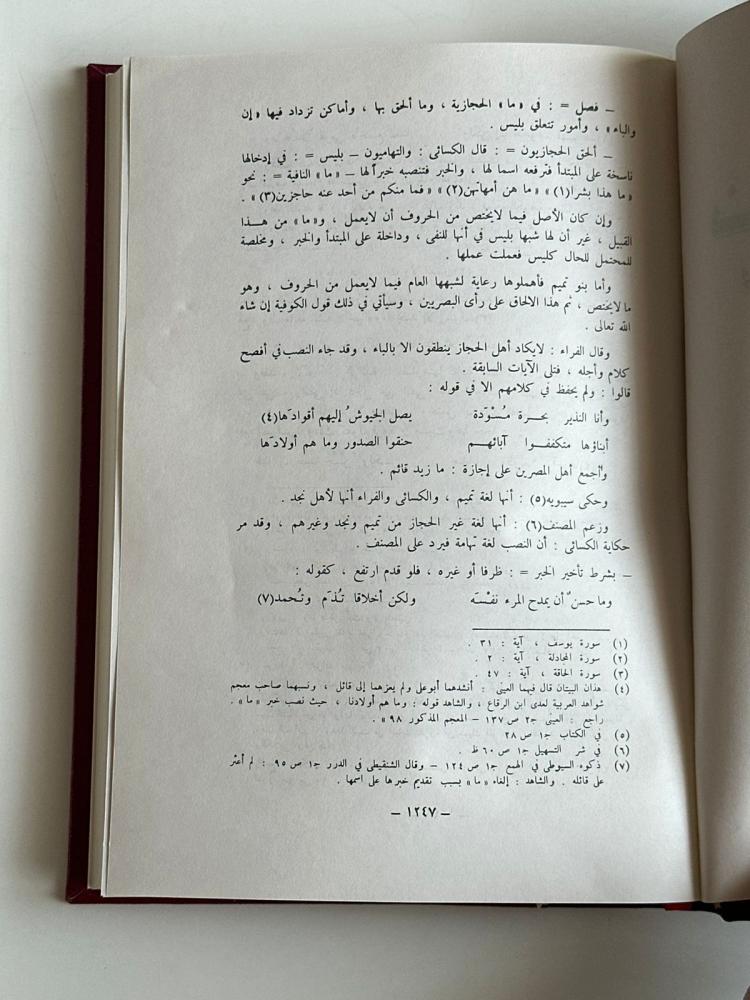 ــ فصل = : في «ما» الحجازية ، وما ألحق بها ، وأماكن تزداد فيها «إن
والباء» ، وأمور تتعلق بليس .
ــ ألحق الحجازيون = : قال الكسائى : والتهاميون ــ بليس = : في إدخالها
ناسخة على المبتدأ فترفعه اسما لها ، والخبر فتنصبه خبراً لها ــ «ما» النافية = : نحو
«ما هذا بشرا(١)» «ما هن أمهاتهن(٢)» «فما منكم من أحد عنه حاجزين(٣)» .
وإن كان الأصل فيما لايختص من الحروف أن لايعمل ، و«ما» من هــذا
القبيل ، غير أن لها شبها بليس في أنها للنفى ، وداخلة على المبتدأ والخبر ، ومخلصة
للمحتمل للحال كليس فعملت عملها .
وأما بنو تميم فأهملوها رعاية لشبهها العام فيما لايعمل من الحروف ، وهو
ما لايختص ، ثم هذا الالحاق على رأى البصريين ، وسيأتي في ذلك قول الكوفية إن شاء
الله تعالى .
وقال الفراء : لايكاد أهل الحجاز ينطقون الا بالباء ، وقد جاء النصب في أفصح
كلام وأجله ، فتلى الآيات السابقة .
قالوا : ولم يحفظ في كلامهم الا في قوله :
وأنا النذير بحــرة مُسْوَدة يصل الجيوشُ إليهم أقوادَها(٤)
أبناؤها متكنفــوا آبائهــم حنقوا الصدور وما هم أولادَها
وأجمع أهل المصرين على إجازة : ما زيد قائم .
وحكى سيبويه(٥) : أنها لغة تميم ، والكسائى والفراء أنها لأهل نجد .
وزعم المصنف(٦) : أنها لغة غير الحجاز من تميم ونجد وغيرهم ، وقد مر
حكاية الكسائى : أن النصب لغة تهامة فيرد على المصنف .
ــ بشرط تأخير الخبر = : ظرفا أو غيره ، فلو قدم ارتفع ، كقوله :
وما حسنٌ أن يمدح المرء نفْسَه ولكن أخلاقا تُذَم وتُحمد(٧)
(١) سورة يوسف ، آية : ٣١ .
(٢) سورة المجادلة ، آية : ٢ .
(٣) سورة الحاقة ، آية : ٤٧ .
(٤) هذان البيتان قال فيهما العينى : أنشدهما أبوعلى ولم يعزهما إلى قائل ، ونسبهما صاحب معجم
شواهد العربية لعدى ابن الرقاع ، والشاهد قوله : وما هم أولادنا ، حيث نصب خبر «ما» .
راجع : العينى ج٢ ص ١٣٧ ــ المعجم المذكور ٩٨» .
(٥) في الكتاب ج١ ص ٢٨
(٦) في شر التسهيل ج١ ص ٦٠ ظ .
(٧) ذكره السيوطى في الهمع ج١ ص ١٢٤ ــ وقال الشنقيطى في الدرر ج١ ص ٩٥ : لم أعثر
على قائله . والشاهد : إلغاء «ما» بسبب تقديم خبرها على اسمها .
ــ ١٢٤٧ ــ